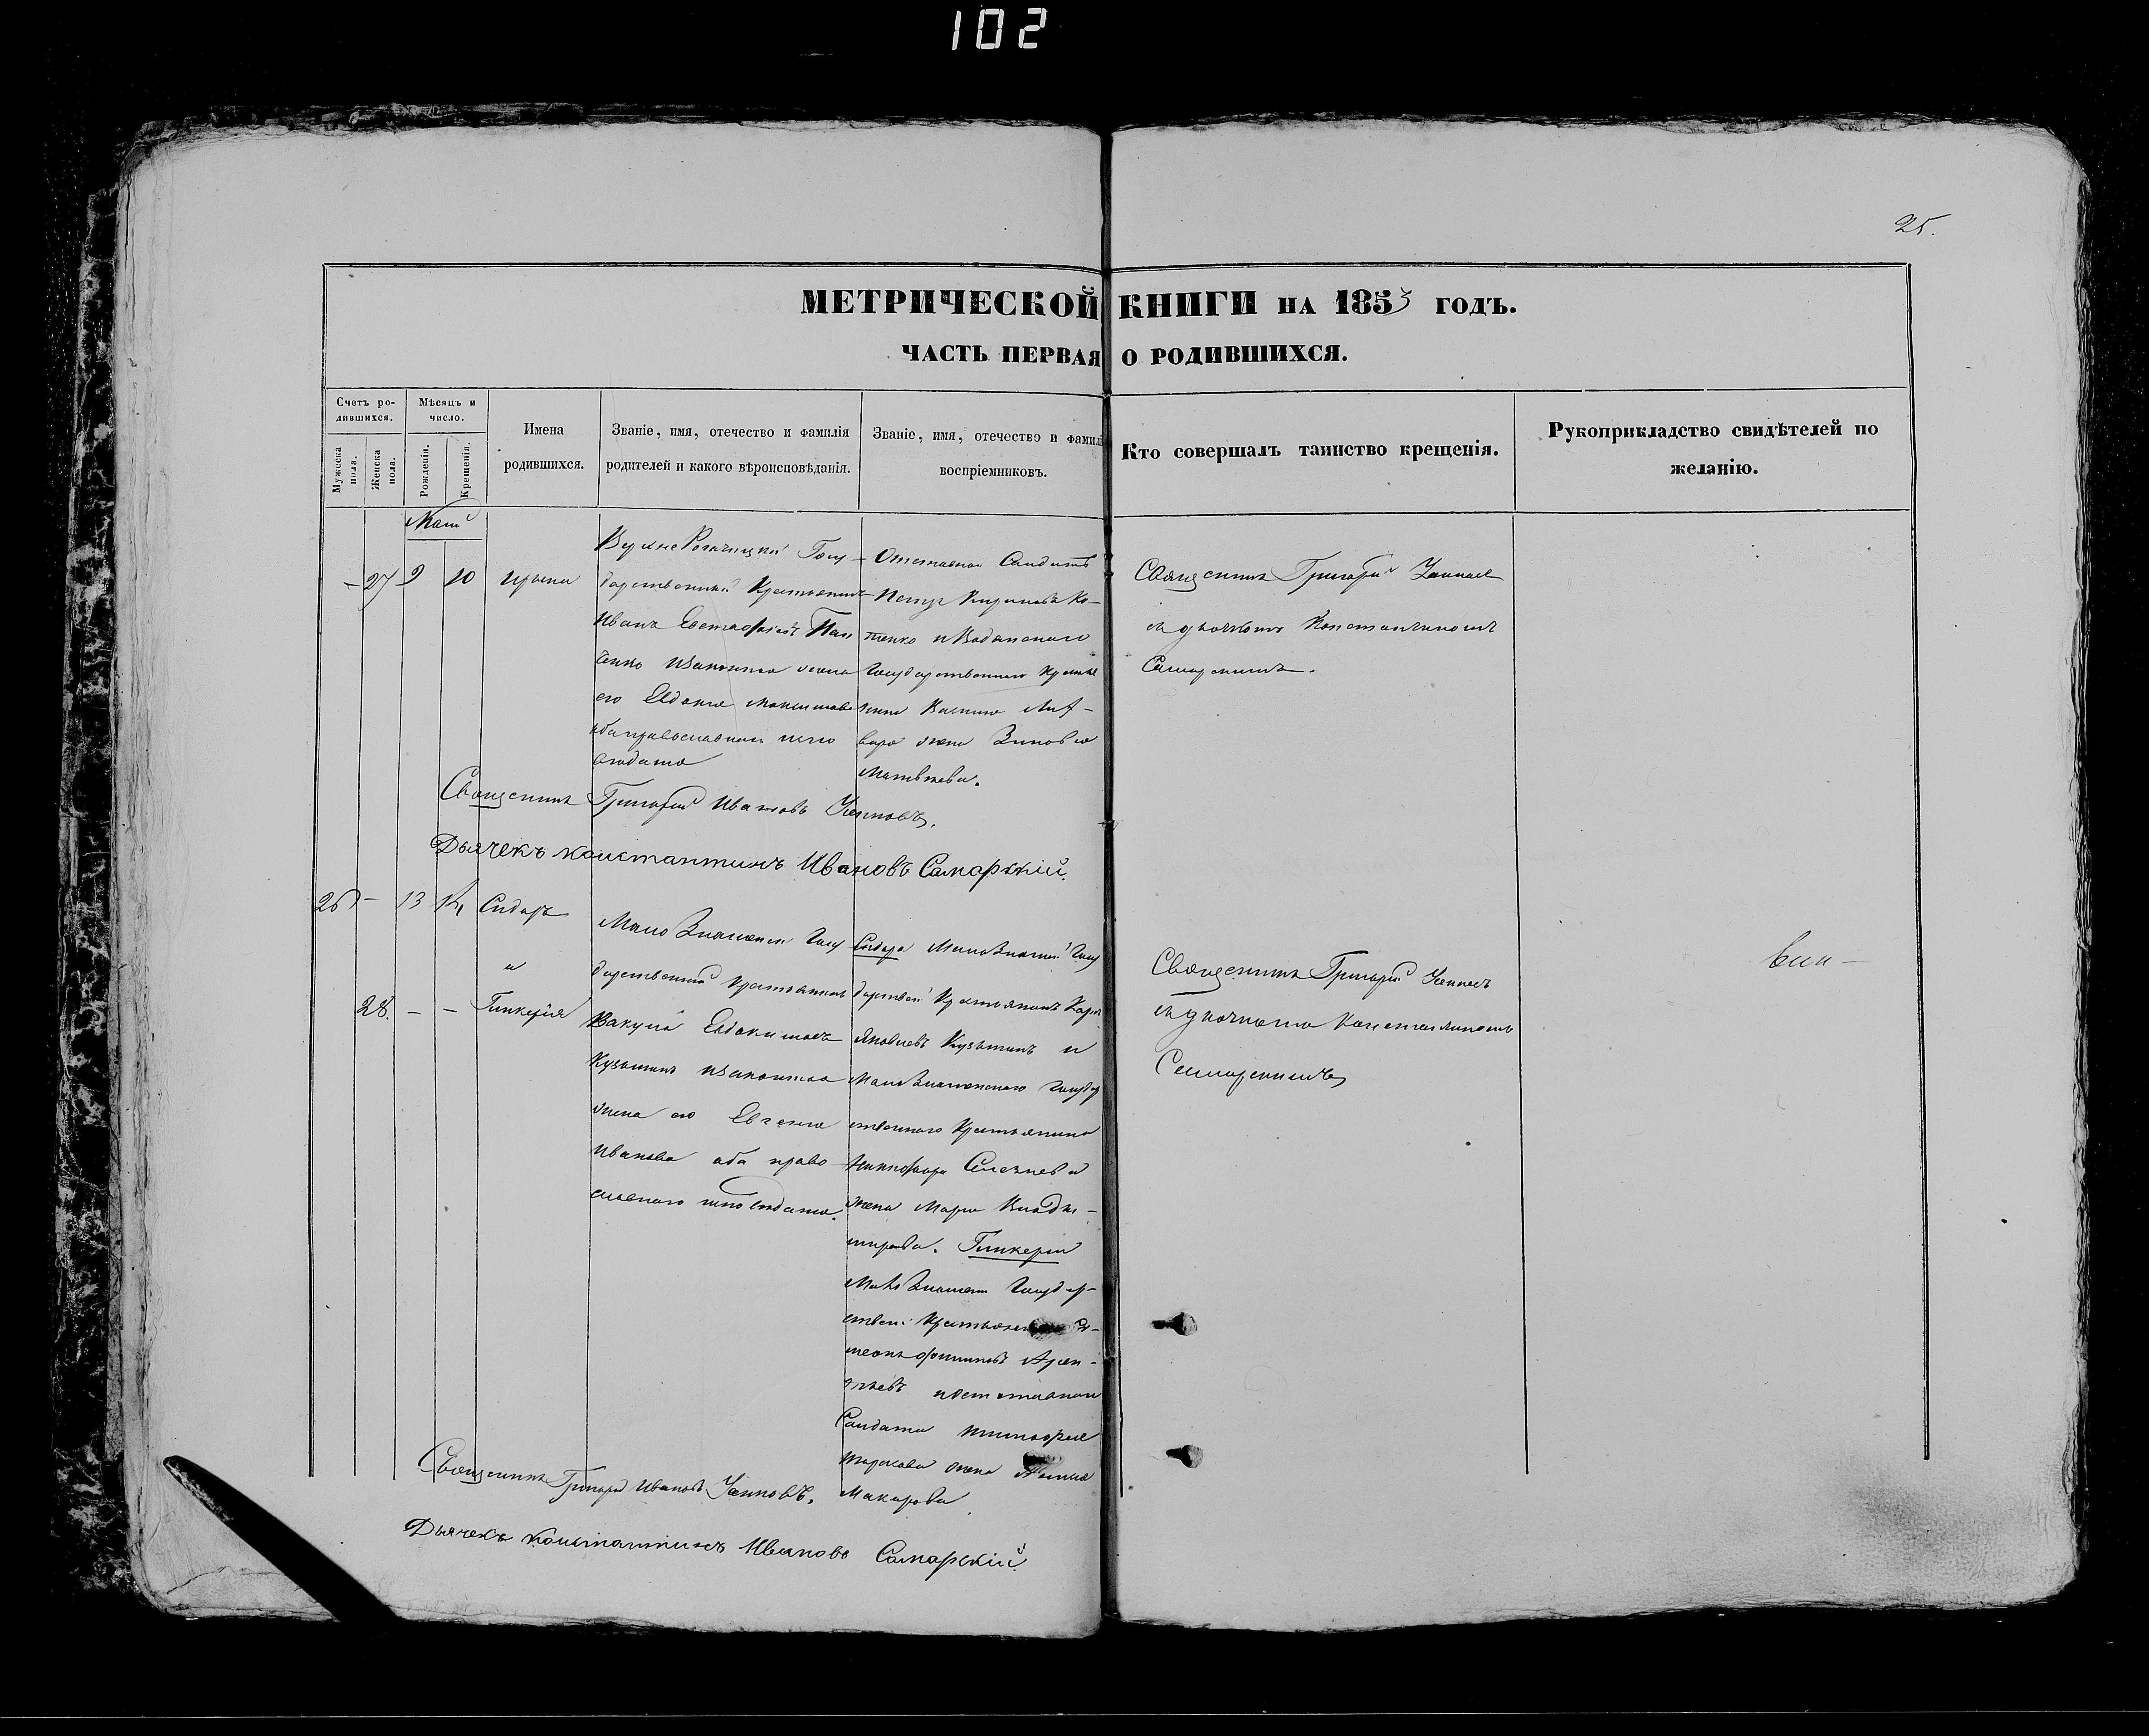 102
25.
МЕТРИЧЕСКОЙ КНИГИ НА 1853 ГОДЪ.
ЧАСТЬ ПЕРВАЯ О РОДИВШИХСЯ.
Счетъ ро-
дившихся.
Мужеска
пола.
Женска
пола.
Мѣсяцъ и
число.
Рожденія.
Крещенія.
Имена
родившихся.
Званіе, имя, отечество и фамилія
родителей и какого вѣроисповѣданія.
Званіе, имя, отечество и фамилі
воспріемниковъ.
Кто совершалъ таинство крещенія.
Рукоприкладство свидѣтелей по
желанію.
Май
- 27 9 10 Ирина
Госу-
дарственный Крестьянинъ
Иванъ Евстафіевъ
законная жена
его Евдокія Максимова
оба православнаго испо
вѣданія
Отставной Солдатъ
Петръ Ко-
тенко и Водянскаго
Государственнаго Крестья
жена Зиновія
Матвѣева.
Священникъ Григорій
съ дьячкомъ Константиномъ
Самарскимъ.
Священникъ Григорій Ивановъ
Дьячекъ Константинъ Ивановъ Самарскій.
26 - 13 14 Сидоръ
и
28. - - Гликерія
Мало Знаменск Госу
дарственный Крестьянинъ
Вакула Евдокимовъ
Кузьминъ законная
жена его Евгенія
Иванова оба право
славнаго исповѣданія.
Сидора Мало Знамен Госу
дарствен Крестьянинъ Карпъ
Яковлевъ Кузьминъ и
Мало Знаменскаго Государ
ственнаго Крестьянина
Никифора Селезнева
жена Марія Влади-
мирова. Гликеріи
Мало Знамен Государ-
ствен Крестьянинъ Си-
меонъ
и отставнаго
Солдата Тимофея
Тарасова жена
Макарова
Священникъ Григорій
съ дьячкомъ Константиномъ
Самарскимъ
Священникъ Григорій Ивановъ
Дьячекъ Константинъ Ивановъ Самарскій.